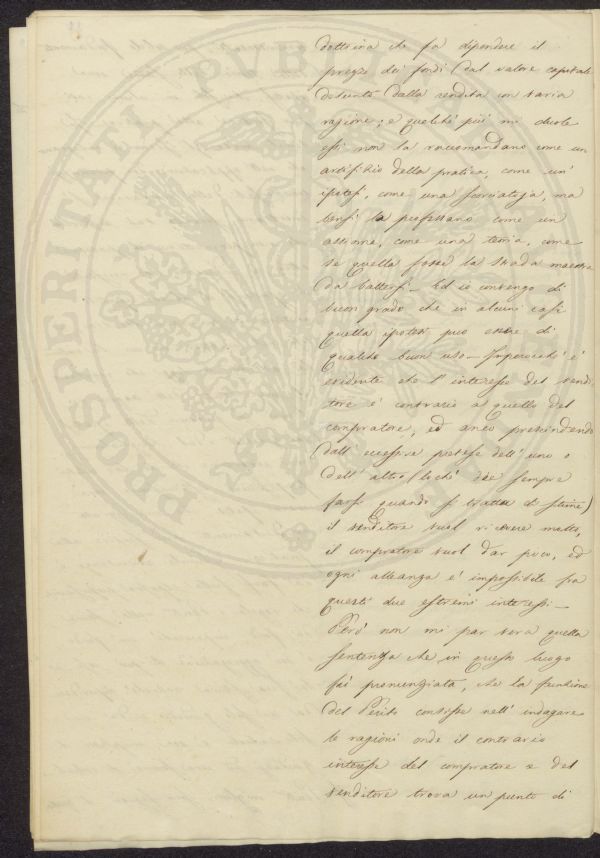 dottrina che fa dipendere il
prezzo dei fondi dal valore capitale
dedunto dalla rendita con varia
ragione; e quelchè più mi duole
essi non la raccomandano come un
artifizio della pratica, come un'
ipotesi, come una scorciatoja, ma
bensì la professano come un
assioma, come una teoria, come
se quella fosse la strada maestra
da battersi_ Ed io convengo di
buon grado che in alcuni casi
quella ipotesi può essere di
qualche buon uso_ Imperocchè è
evidente che l'interesse del vendi
tore è contrario a quello del
compratore, ed anco prescindendo
dall'eccessive pretese dell'uno o
dell'altro (lochè dee sempre
farsi quando si tratta di stime)
il venditore vuol ricevere molto,
il compratore vuol dar poco, ed
ogni alleanza è impossibile fra
questi due estremi interessi_
Però non mi par vera quella
sentenza che in questo luogo
fù pronunziata, che la funzione
del Perito consiste nell'indagare
le ragioni onde il contrario
interesse del compratore e del
venditore trova un punto di
PROSPERITATI PUBLICAE